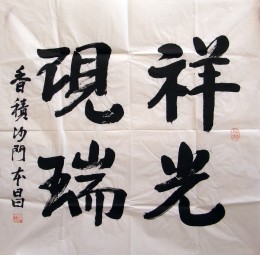 祥光
現瑞
香積沙門本昌